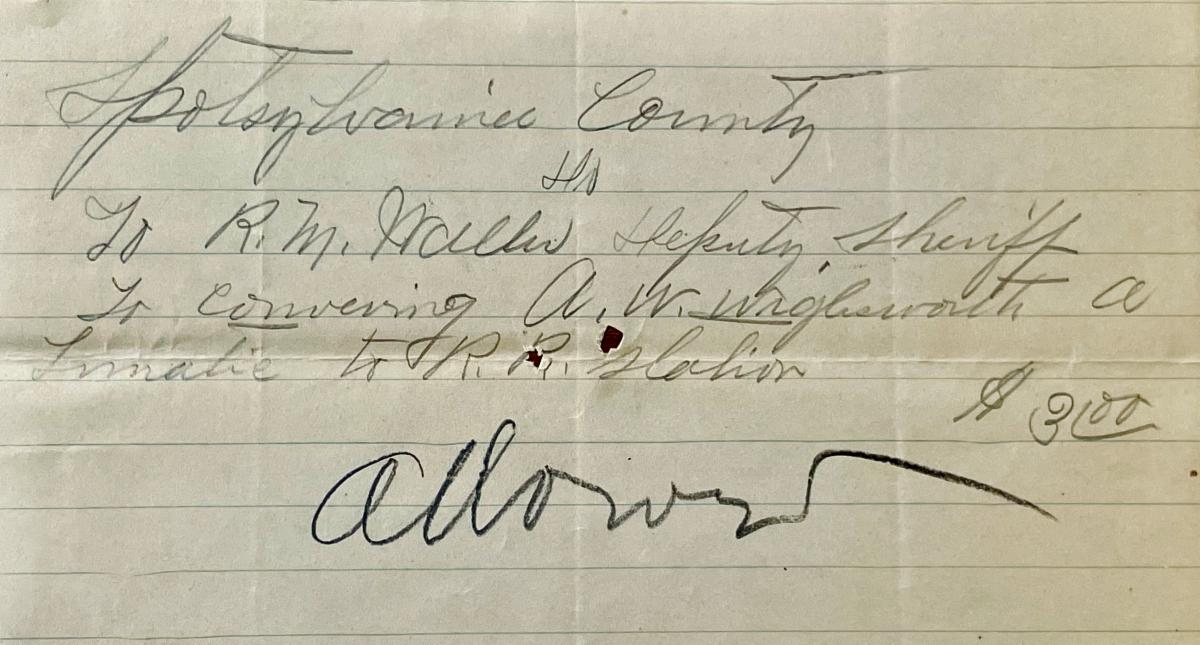 Spotsylvania County
Dr
To R. M. Waller Deputy Sheriff
To conveying A. W. Wiglesworth a
Lunatic to R. R. Station
$ 3.00
Allowed